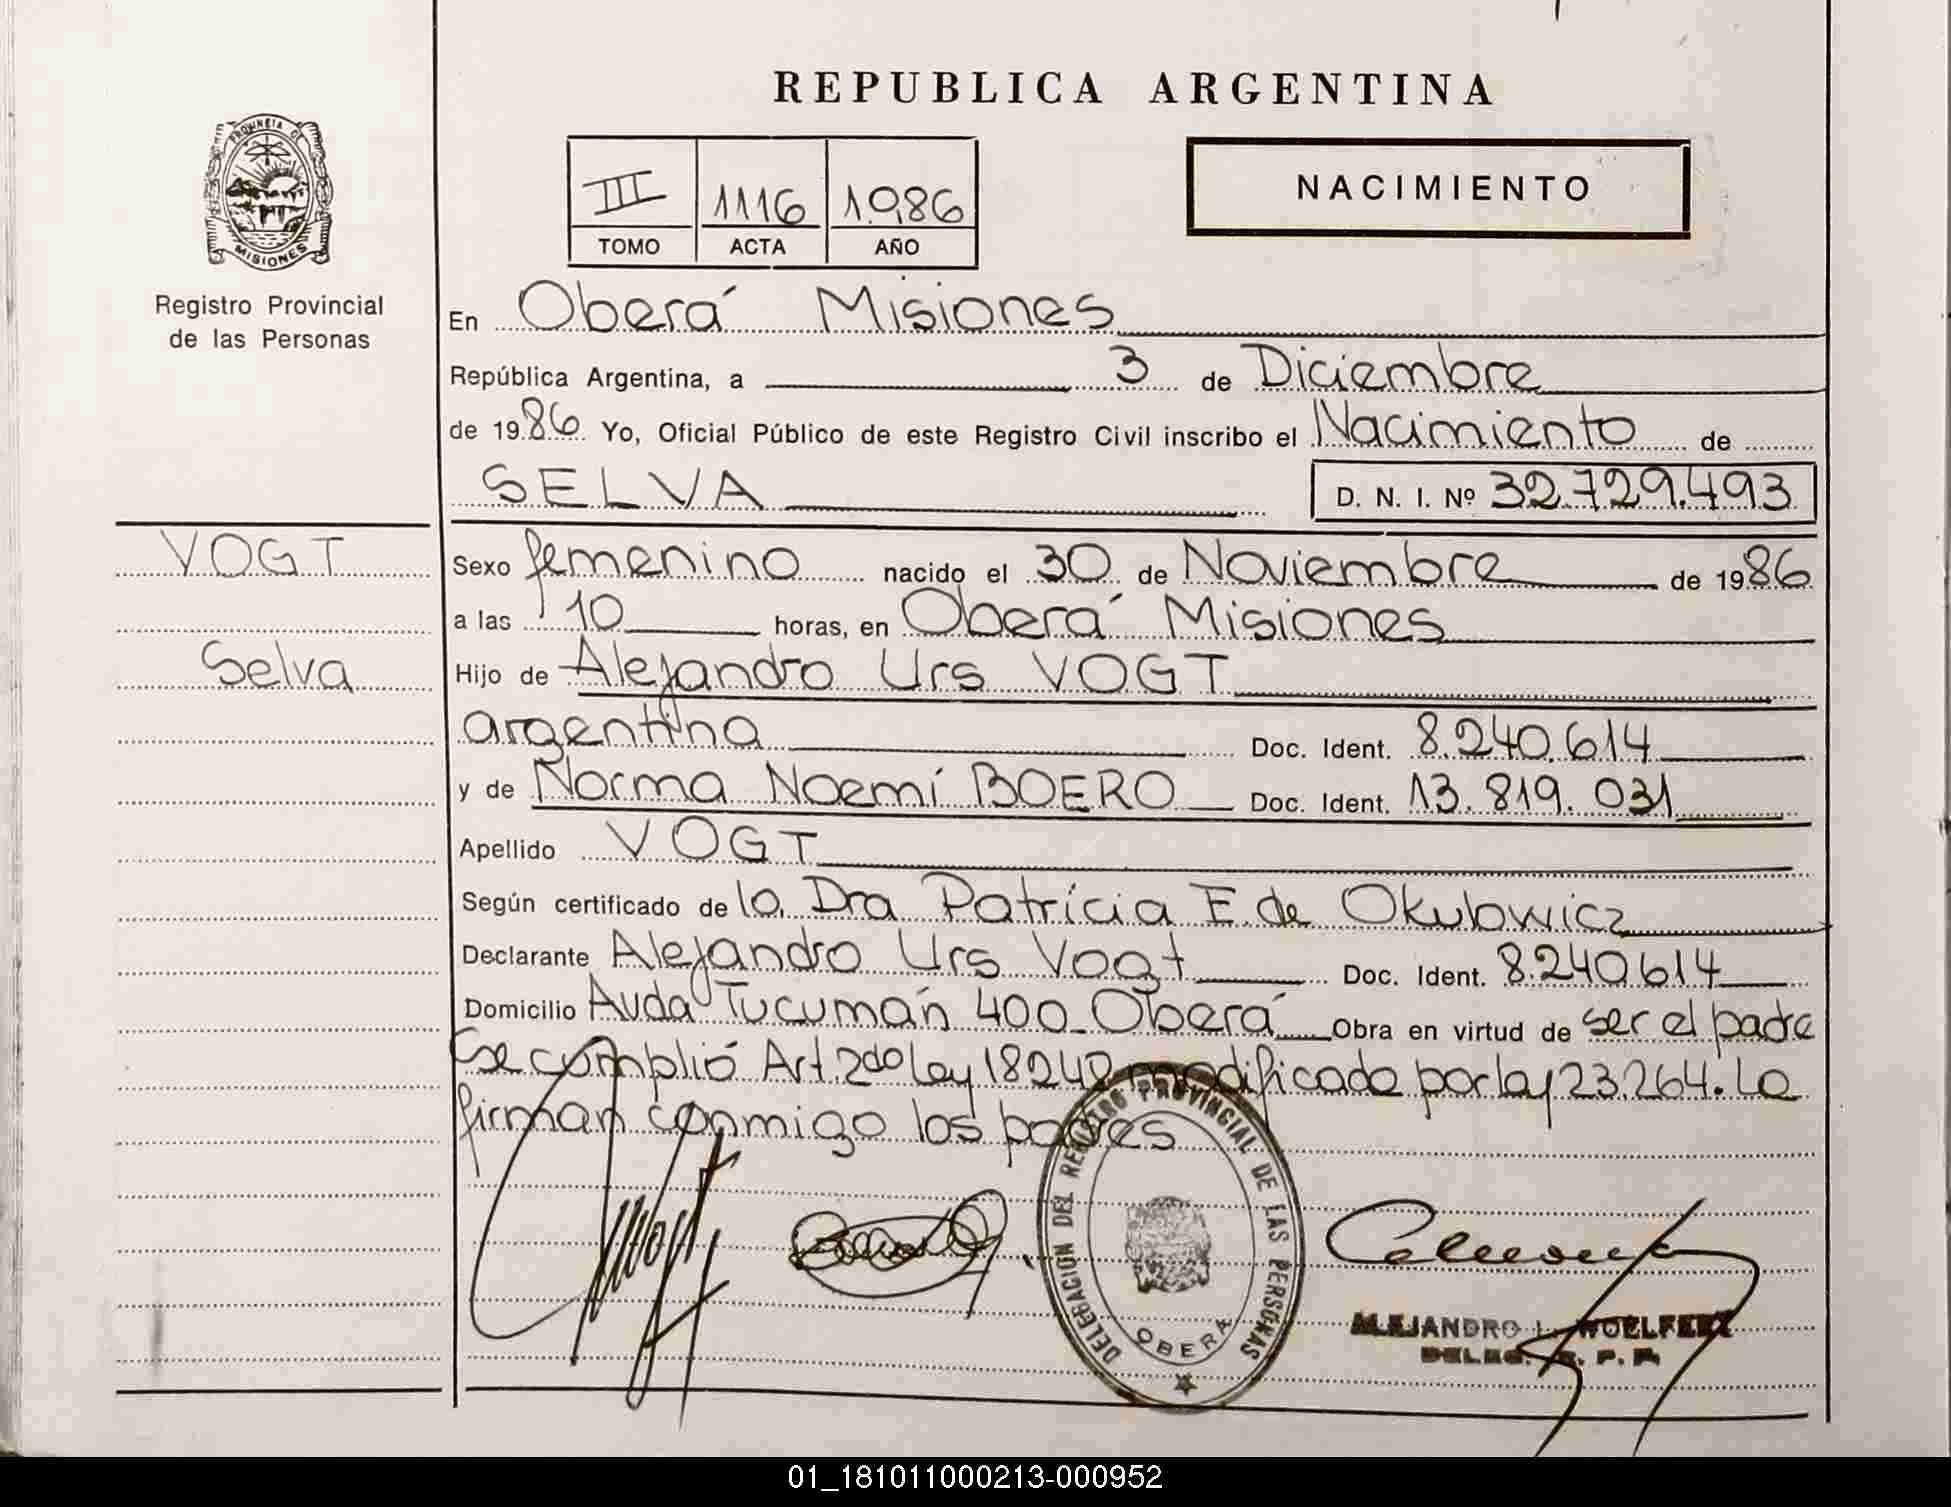 REPUBLICA ARGENTINA
PROVINCIA DE MISIONES
Registro Provincial
de las Personas
III 1116 1.986
TOMO ACTA AÑO
NACIMIENTO
En Oberá Misiones
República Argentina, a 3 de Diciembre
de 1986 Yo, Oficial Público de este Registro Civil inscribo el Nacimiento de
SELVA D. N. I. Nº 32.729.493
VOGT
Selva
Sexo femenino nacido el 30 de Noviembre de 1986
a las 10 horas, en Oberá Misiones
Hijo de Alejandro Urs VOGT
argentina Doc. Ident. 8.240.614
y de Norma Noemí BOERO Doc. Ident. 13.819.031
Apellido VOGT
Según certificado de la Dra Patrícia E. de Okulowicz
Declarante Alejandro Urs Vogt Doc. Ident. 8.240.614
Domicilio Avda Tucumán 400 - Oberá Obra en virtud de ser el padre
Se cumplió Art. 2do Ley 18248 modificada por ley 23.264. La
firman conmigo los padres
DELEGACION DEL REGISTRO PROVINCIAL DE LAS PERSONAS
OBERA
ALEJANDRO L. WOELFERT
DELEG. R. P. P.
01_181011000213-000952